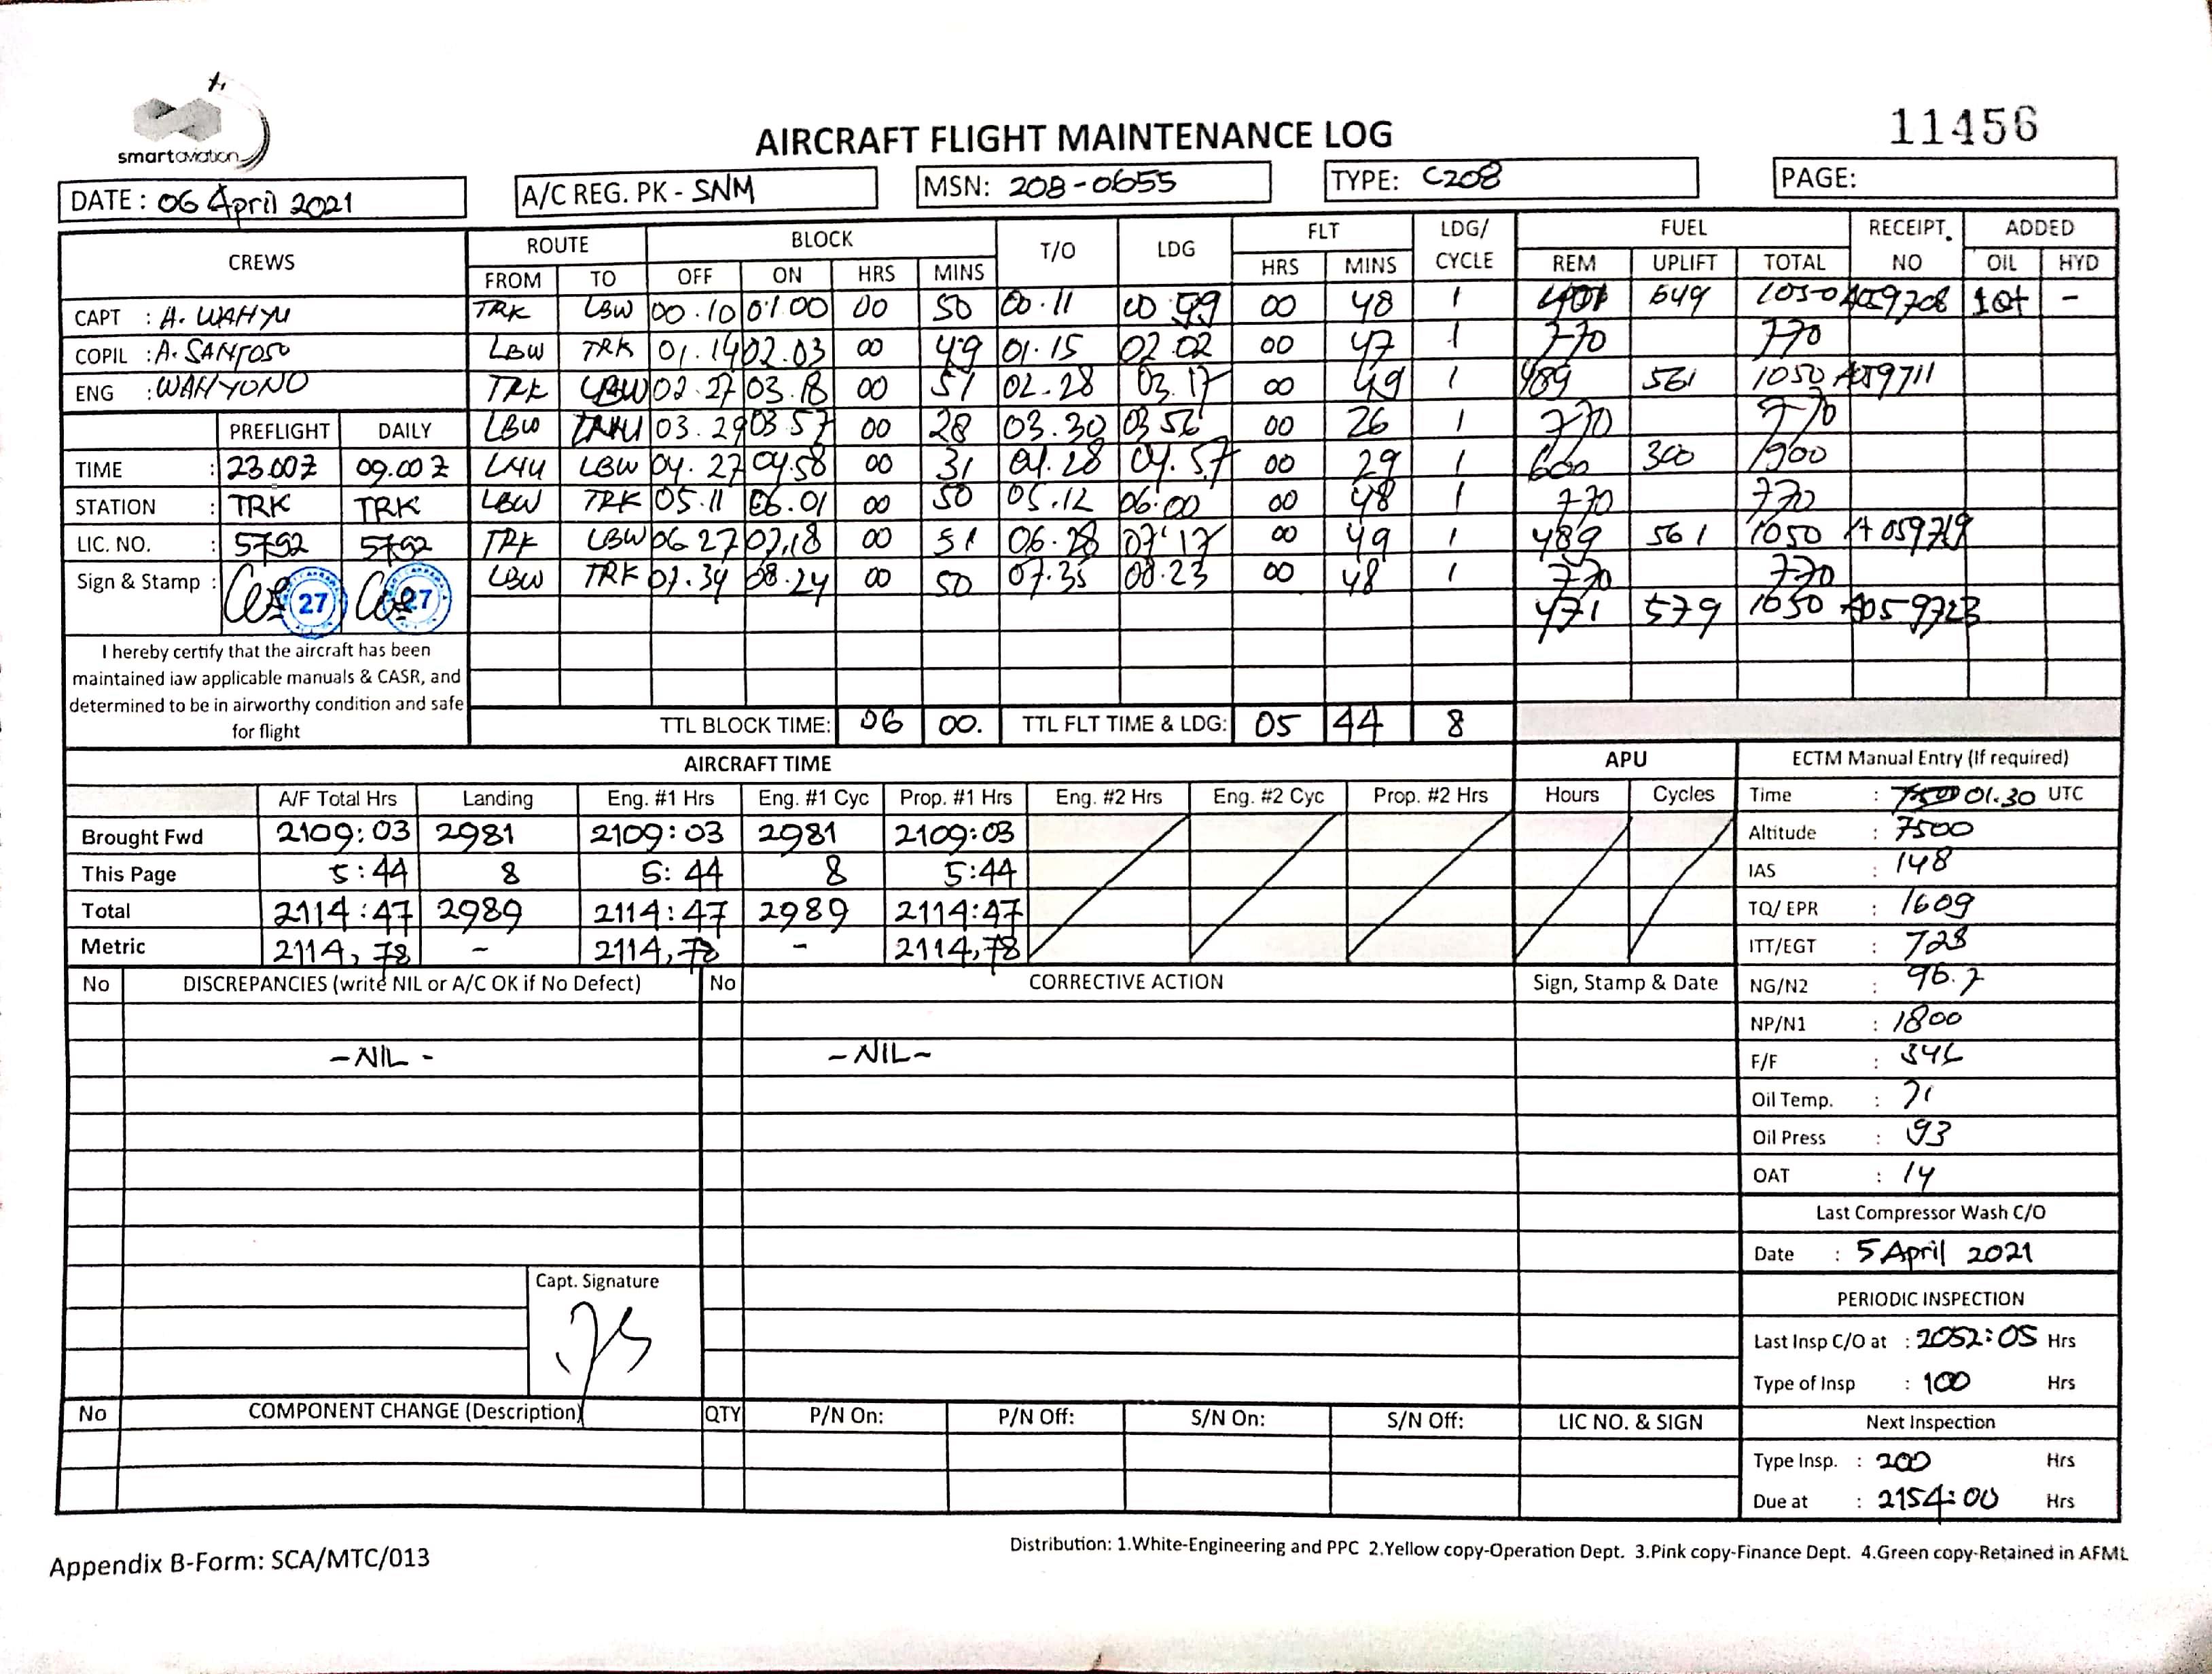 smartaviation
AIRCRAFT FLIGHT MAINTENANCE LOG
11456
DATE : 06 April 2021
A/C REG. PK - SNM
MSN: 208-0655
TYPE: C208
PAGE:
CREWS ROUTE BLOCK T/O LDG FLT LDG/ CYCLE FUEL RECEIPT. NO ADDED
FROM TO OFF ON HRS MINS HRS MINS REM UPLIFT TOTAL OIL HYD
CAPT : A. WAHYU TRK LBW 00.10 01.00 00 50 00.11 00 59 00 48 1 649 1050 A059708 1Qt -
COPIL : A. SANTOSO LBW TRK 01.14 02.03 00 49 01.15 02.02 00 47 1 770 770
ENG : WAHYONO TRK LBW 02.27 03.18 00 51 02.28 03.17 00 49 1 489 561 1050 A059711
PREFLIGHT DAILY LBW 03.29 03.57 00 28 03.30 03 56 00 26 1 770 770
TIME : 23.00Z 09.00Z LNU LBW 04.27 04.58 00 31 04.28 04.57 00 29 1 600 300 900
STATION : TRK TRK LBW TRK 05.11 06.01 00 50 05.12 06:00 00 48 1 770 770
LIC. NO. : 5792 5792 TRK LBW 06 27 07.18 00 51 06.28 07.17 00 49 1 489 561 1050 A059719
Sign & Stamp : 27 27 LBW TRK 07.34 08.24 00 50 07.35 08.23 00 48 1 770 770
471 579 1050 A059723
I hereby certify that the aircraft has been
maintained iaw applicable manuals & CASR, and
determined to be in airworthy condition and safe
for flight
TTL BLOCK TIME: 06 00. TTL FLT TIME & LDG: 05 44 8
AIRCRAFT TIME APU
A/F Total Hrs Landing Eng. #1 Hrs Eng. #1 Cyc Prop. #1 Hrs Eng. #2 Hrs Eng. #2 Cyc Prop. #2 Hrs Hours Cycles
Brought Fwd 2109:03 2981 2109:03 2981 2109:03
This Page 5:44 8 5:44 8 5:44
Total 2114:47 2989 2114:47 2989 2114:47
Metric 2114,78 - 2114,78 - 2114,78
ECTM Manual Entry (If required)
Time : 01.30 UTC
Altitude : 7500
IAS : 148
TQ/ EPR : 1609
ITT/EGT : 728
NG/N2 : 96.7
NP/N1 : 1800
F/F : 346
Oil Temp. : 71
Oil Press : 93
OAT : 14
Last Compressor Wash C/O
Date : 5 April 2021
PERIODIC INSPECTION
Last Insp C/O at : 2052:05 Hrs
Type of Insp : 100 Hrs
Next Inspection
Type Insp. : 200 Hrs
Due at : 2154:00 Hrs
No DISCREPANCIES (write NIL or A/C OK if No Defect) No CORRECTIVE ACTION Sign, Stamp & Date
-NIL- -NIL-
Capt. Signature
No COMPONENT CHANGE (Description) QTY P/N On: P/N Off: S/N On: S/N Off: LIC NO. & SIGN
Appendix B-Form: SCA/MTC/013
Distribution: 1.White-Engineering and PPC 2.Yellow copy-Operation Dept. 3.Pink copy-Finance Dept. 4.Green copy-Retained in AFML